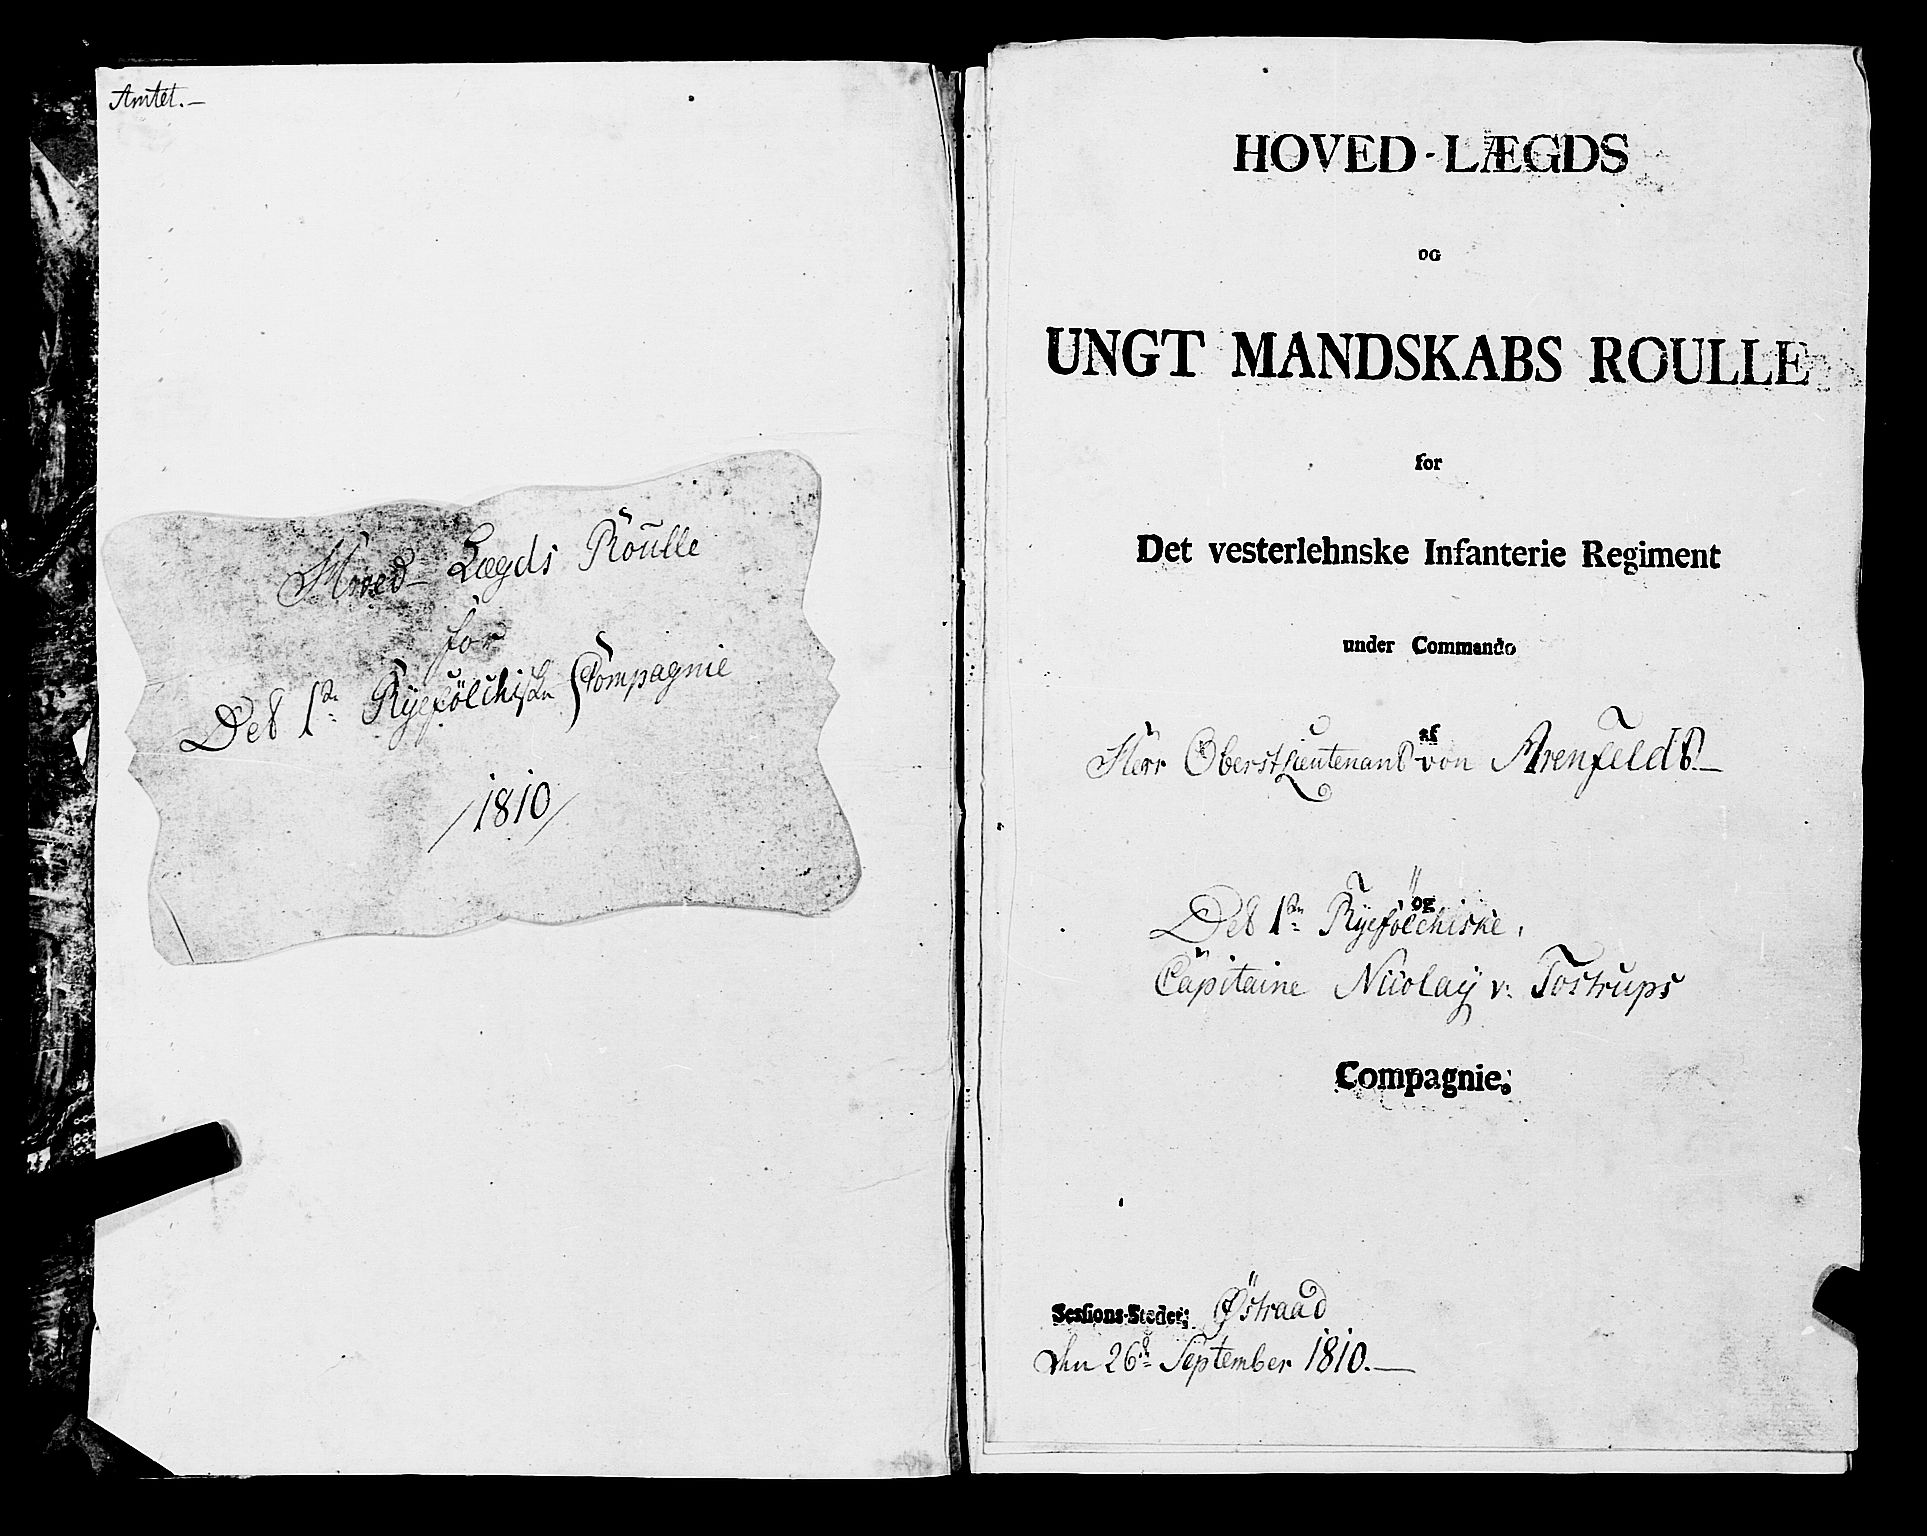 Amtet.—
Hoved-Lægds Roulle
for
Det 1ste Ryefölchiske Compagnie
/1810/
HOVED-LÆGDS
OG
UNGT MANDSKABS ROULLE
for
Det vesterlehnske Infanterie Regiment
under Commando
af
Herr Oberstlieutenant von Arenfeldt.—
og
Det 1ste Ryefölchiske,
Capitaine Nicolay v: Tostrups
Compagnie;
Sessions-Steder; Østraad
den 26de September 1810.—